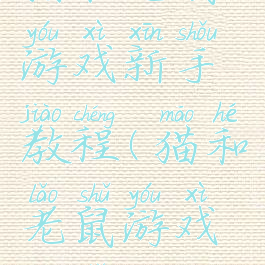 yóu xì xīn shǒu
游戏新手
jiào chéng māo hé
教程(猫和
lǎo shǔ yóu xì
老鼠游戏